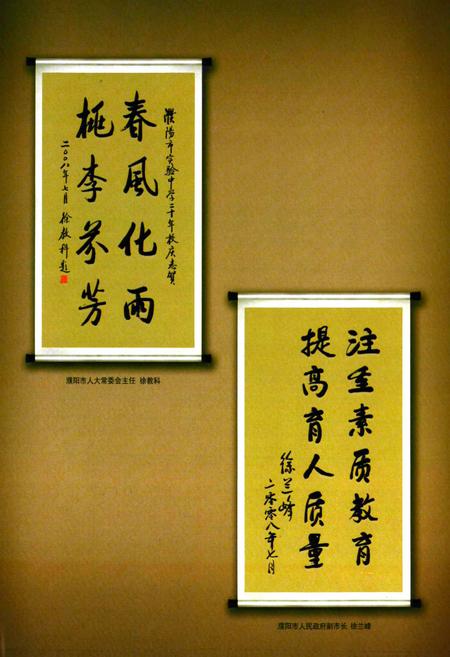 濮陽市实验中学二十年校庆志贺
春風化雨
桃李芬芳
二〇〇八年七月 徐教科题
濮阳市人大常委会主任 徐教科
注重素质教育
提高育人质量
徐兰峰
二零零八年七月
濮阳市人民政府副市长 徐兰峰